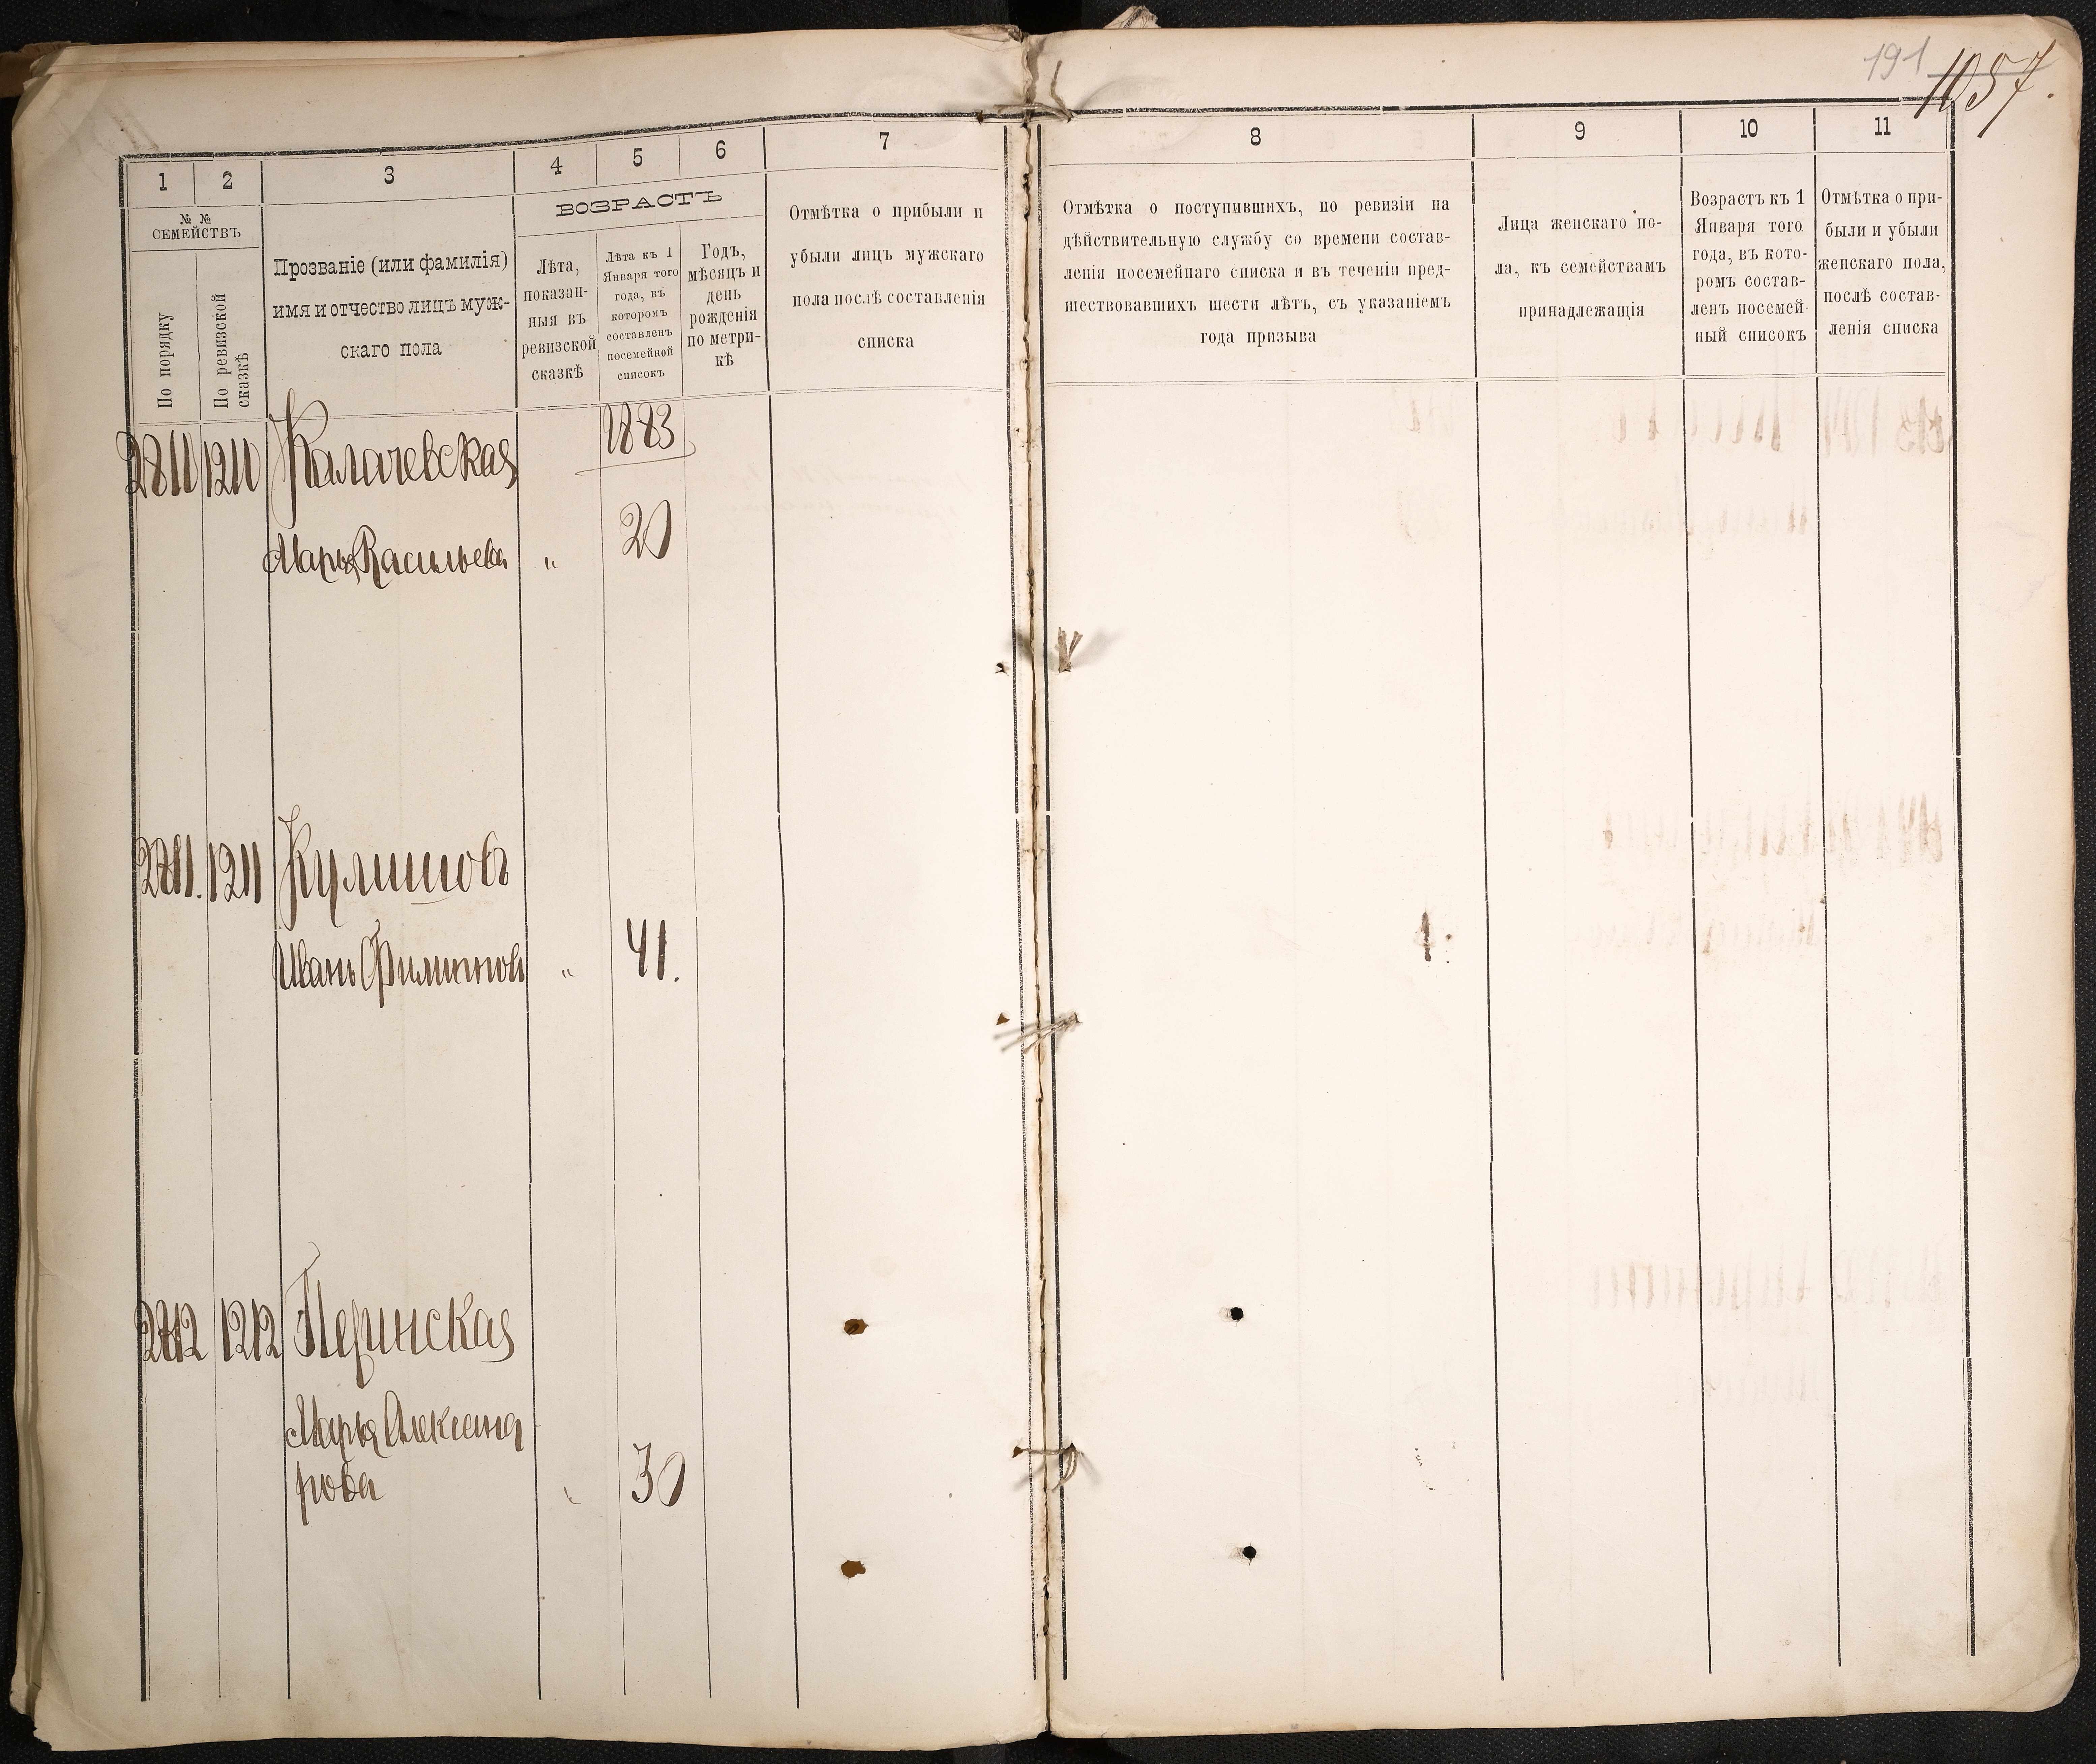 191
1057.
1
2
3
4
5
6
7
8
9
10
11
№ №
СЕМЕЙСТВЪ
По порядку
По ревизской
сказкѣ
Прозваніе (или фамилія)
имя и отчество лицъ муж-
скаго пола
ВОЗРАСТЪ
Лѣта,
показан-
ныя въ
ревизской
сказкѣ
Лѣта къ 1
Января того
года, въ
которомъ
составленъ
посемейной
списокъ
Годъ,
мѣсяцъ и
день
рожденія
по метри-
кѣ
Отмѣтка о прибыли и
убыли лицъ мужскаго
пола послѣ составленія
списка
Отмѣтка о поступившихъ, по ревизіи на
дѣйствительную службу со времени состав-
ленія посемейнаго списка и въ теченіи пред-
шествовавшихъ шести лѣтъ, съ указаніемъ
года призыва
Лица женскаго по-
ла, къ семействамъ
принадлежащія
Возрастъ къ 1
Января того
года, въ кото-
ромъ состав-
ленъ посемей-
ный списокъ
Отмѣтка о при-
были и убыли
женскаго пола,
послѣ состав-
ленія списка
1883
2810 1210 Калачевская
Марья Васильева " 20
2811. 1211 Кулишовъ
Иванъ Филиповъ " 41.
1.
2812 1212 Перинская
Марья Александ
рова " 30